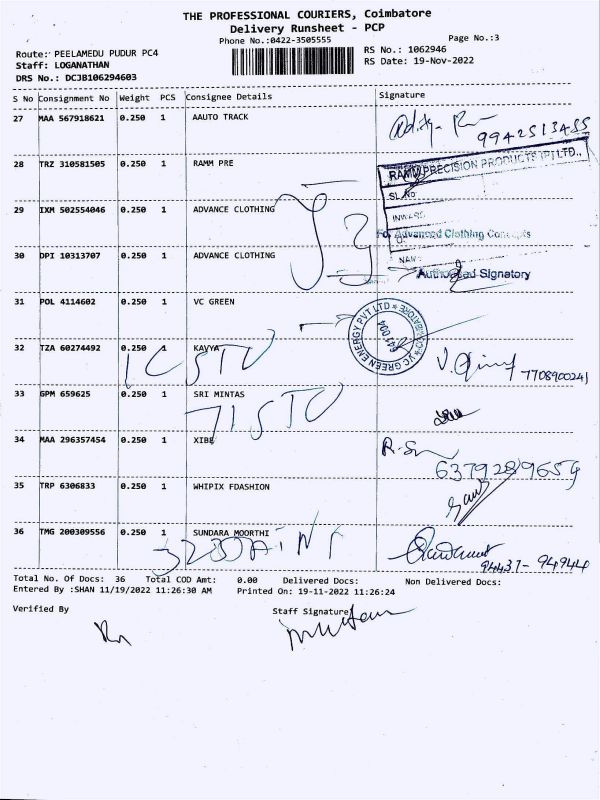 THE PROFESSIONAL COURIERS, Coimbatore
Delivery Runsheet - PCP
Phone No.:0422-3505555
Page No.:3
Route: PEELAMEDU PUDUR PC4
RS No.: 1062946
Staff: LOGANATHAN
RS Date: 19-Nov-2022
DRS No.: DCJB106294603
S No Consignment No Weight PCS Consignee Details Signature
27 MAA 567918621 0.250 1 AAUTO TRACK
9942513485
28 TRZ 310581505 0.250 1 RAMM PRE
RAMM PRECISION PRODUCTS (P) LTD.,
SL.No
INWARD
29 IXM 502554046 0.250 1 ADVANCE CLOTHING
For Advanced Clothing Concepts
30 DPI 10313707 0.250 1 ADVANCE CLOTHING
Authorised Signatory
31 POL 4114602 0.250 1 VC GREEN
VC GREEN ENERGY PVT LTD * COIMBATORE *
641 004
32 TZA 60274492 0.250 1 KAVYA
7708900241
33 GPM 659625 0.250 1 SRI MINTAS
34 MAA 296357454 0.250 1 XIBE
6379289659
35 TRP 6306833 0.250 1 WHIPIX FDASHION
36 TMG 200309556 0.250 1 SUNDARA MOORTHI
94437- 94944
Total No. Of Docs: 36 Total COD Amt: 0.00 Delivered Docs: Non Delivered Docs:
Entered By :SHAN 11/19/2022 11:26:30 AM Printed On: 19-11-2022 11:26:24
Verified By Staff Signature